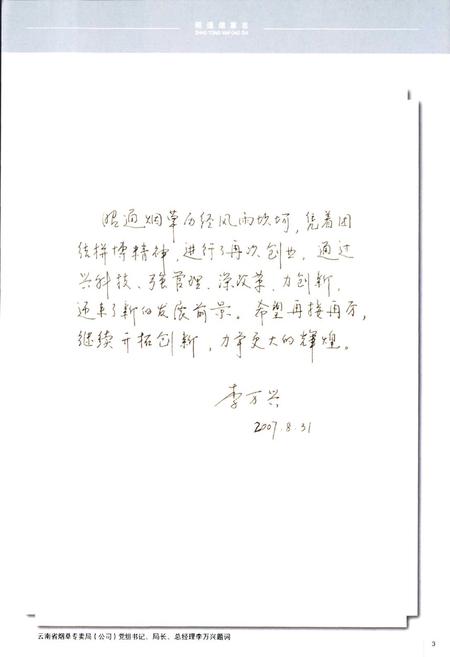 昭通烟草志
昭通烟草历经风雨坎坷，凭着团
结拼搏精神，进行了再次创业，通过
兴科技、强管理、深改革、力创新，
迎来了新的发展前景。希望再接再厉，
继续开拓创新，力争更大的辉煌。
李万兴
2007.8.31
云南省烟草专卖局（公司）党组书记、局长、总经理李万兴题词
3